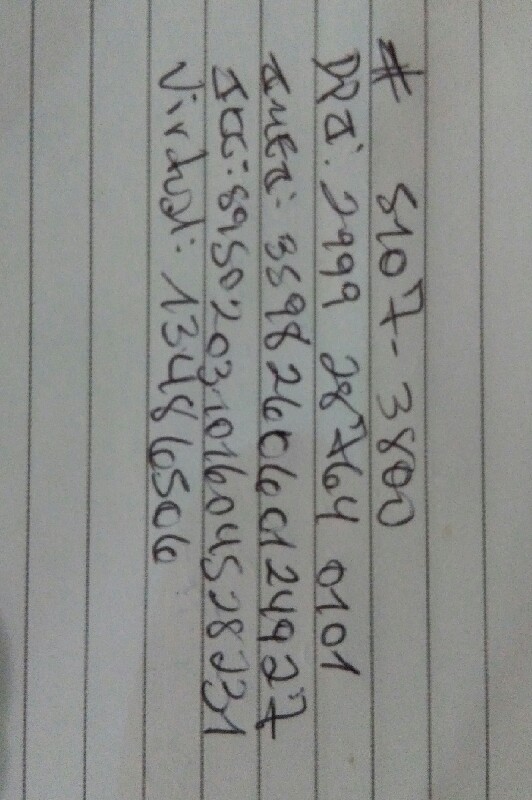 # 5107-3800
DPI: 2999 28764 0101
IMEI: 359826060124927
ICC: 8950203101604528231
Virtual: 13486506